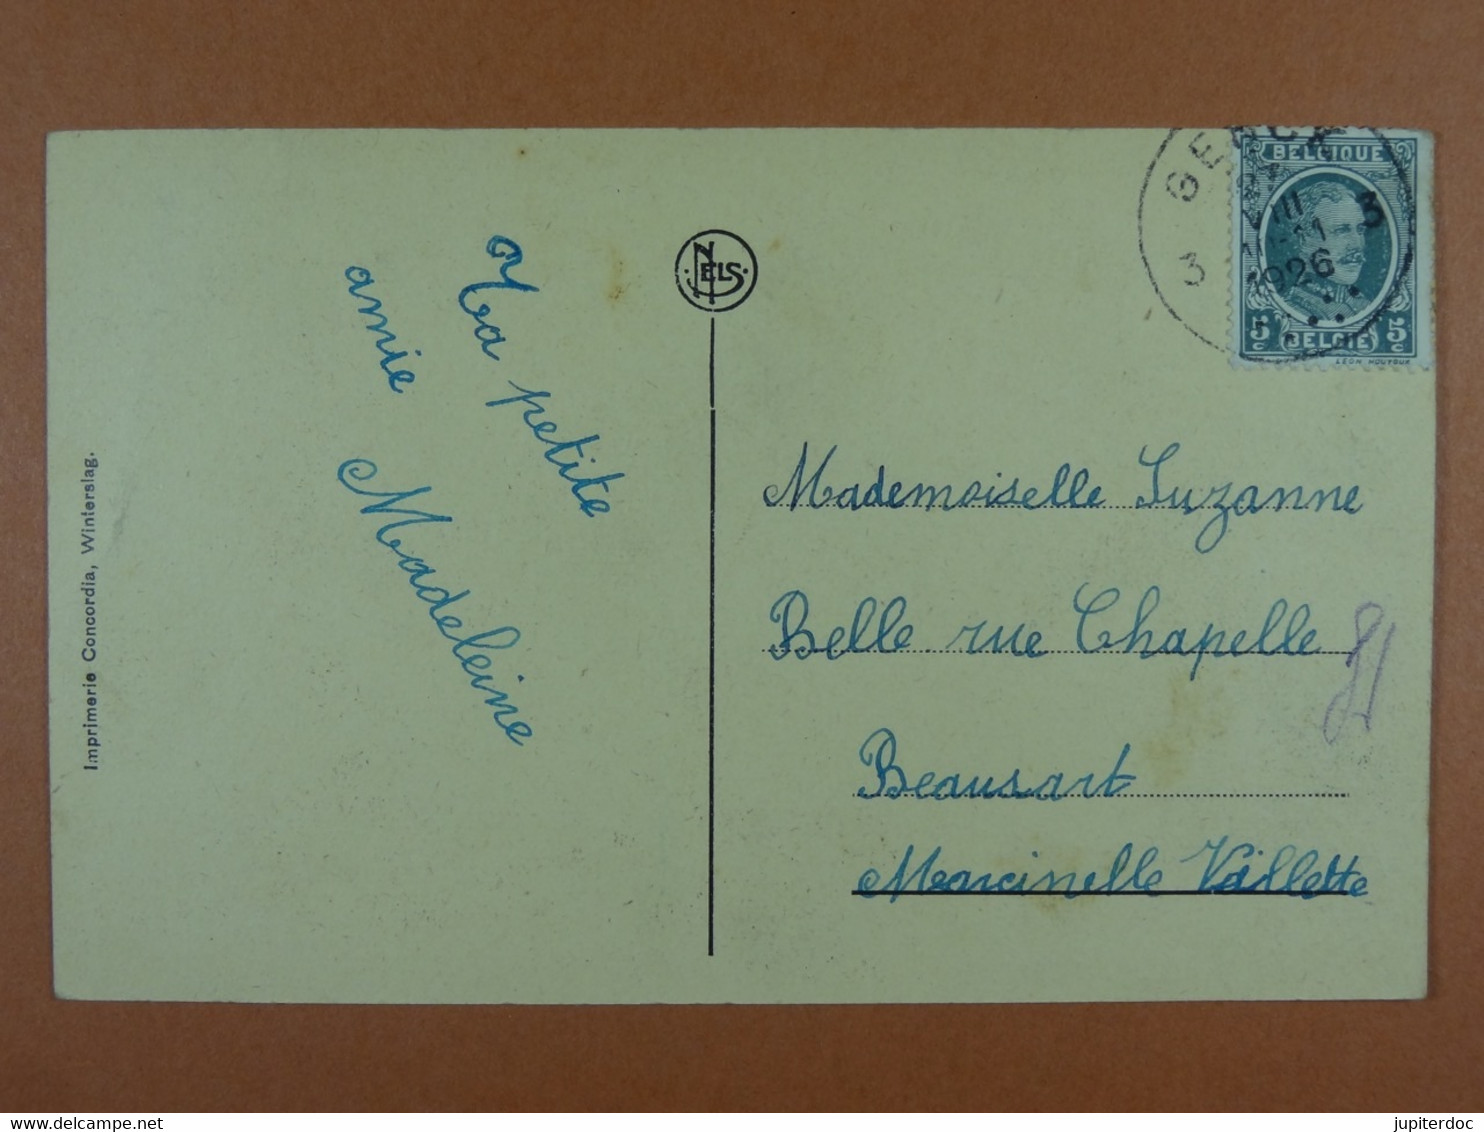 Ta petite
amie
Madeleine
NELS
Imprimerie Concordia, Winterslag.
GENCK
3 3
VIII
1926
BELGIQUE
5c 5c
BELGIË
LÉON HOUYOUX
Mademoiselle Suzanne
Belle rue Chapelle
Beausart
Marcinelle Villette
www.delcampe.net
jupiterdoc